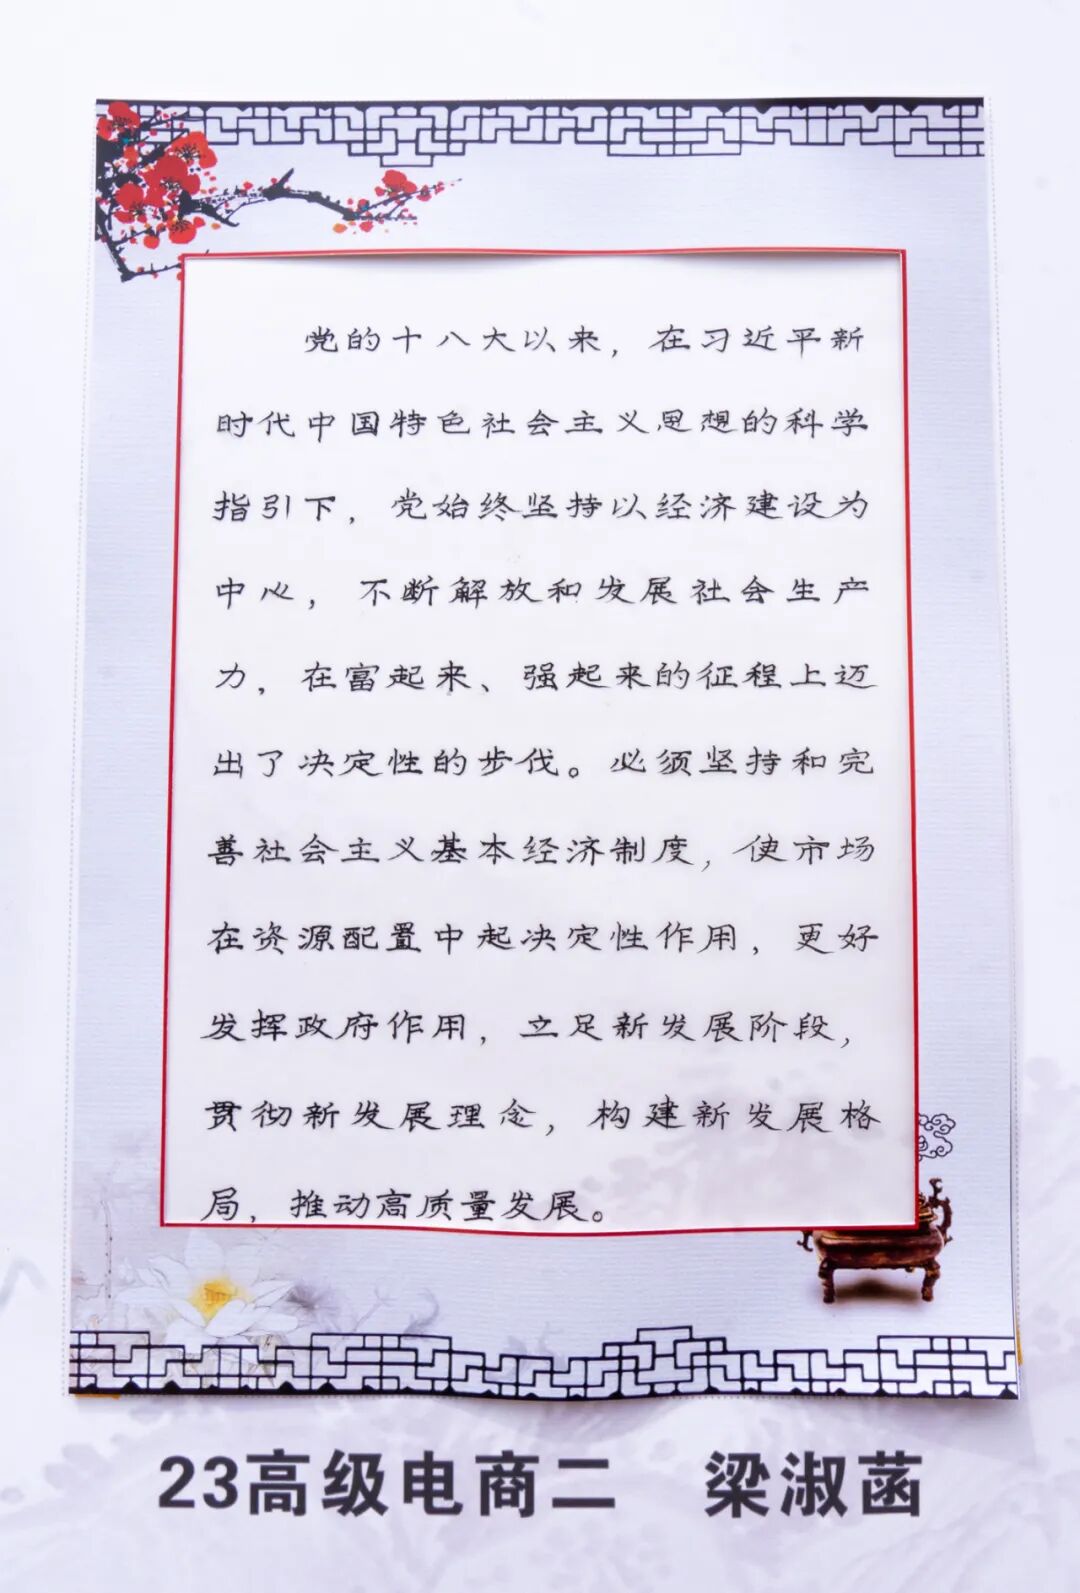 党的十八大以来，在习近平新
时代中国特色社会主义思想的科学
指引下，党始终坚持以经济建设为
中心，不断解放和发展社会生产
力，在富起来、强起来的征程上迈
出了决定性的步伐。必须坚持和完
善社会主义基本经济制度，使市场
在资源配置中起决定性作用，更好
发挥政府作用，立足新发展阶段，
贯彻新发展理念，构建新发展格
局，推动高质量发展。
23高级电商二 梁淑菡